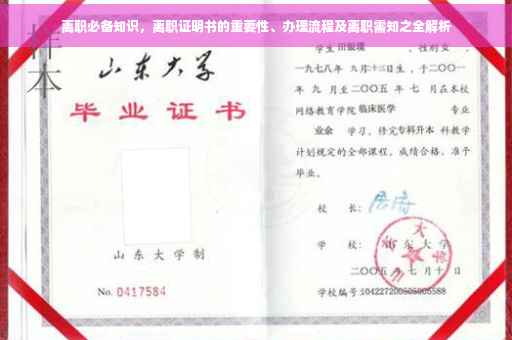 离职必备知识，离职证明书的重要性、办理流程及离职需知之全解析
样本
山东大学
毕业证书
山东大学制
No. 0417584
学生 田骏瑞 ，性别 女 ，
一九七八年 九月十三日生，于二〇〇一
年 九 月至二〇〇五 年 七 月在本校
网络教育学院 临床医学 专业
业余 学习，修完 专科升本 科教学
计划规定的全部课程，成绩合格，准予
毕业。
校 长：
学 校：山东大学
二〇〇五年 七 月 十 日
学校编号:104227200505005588